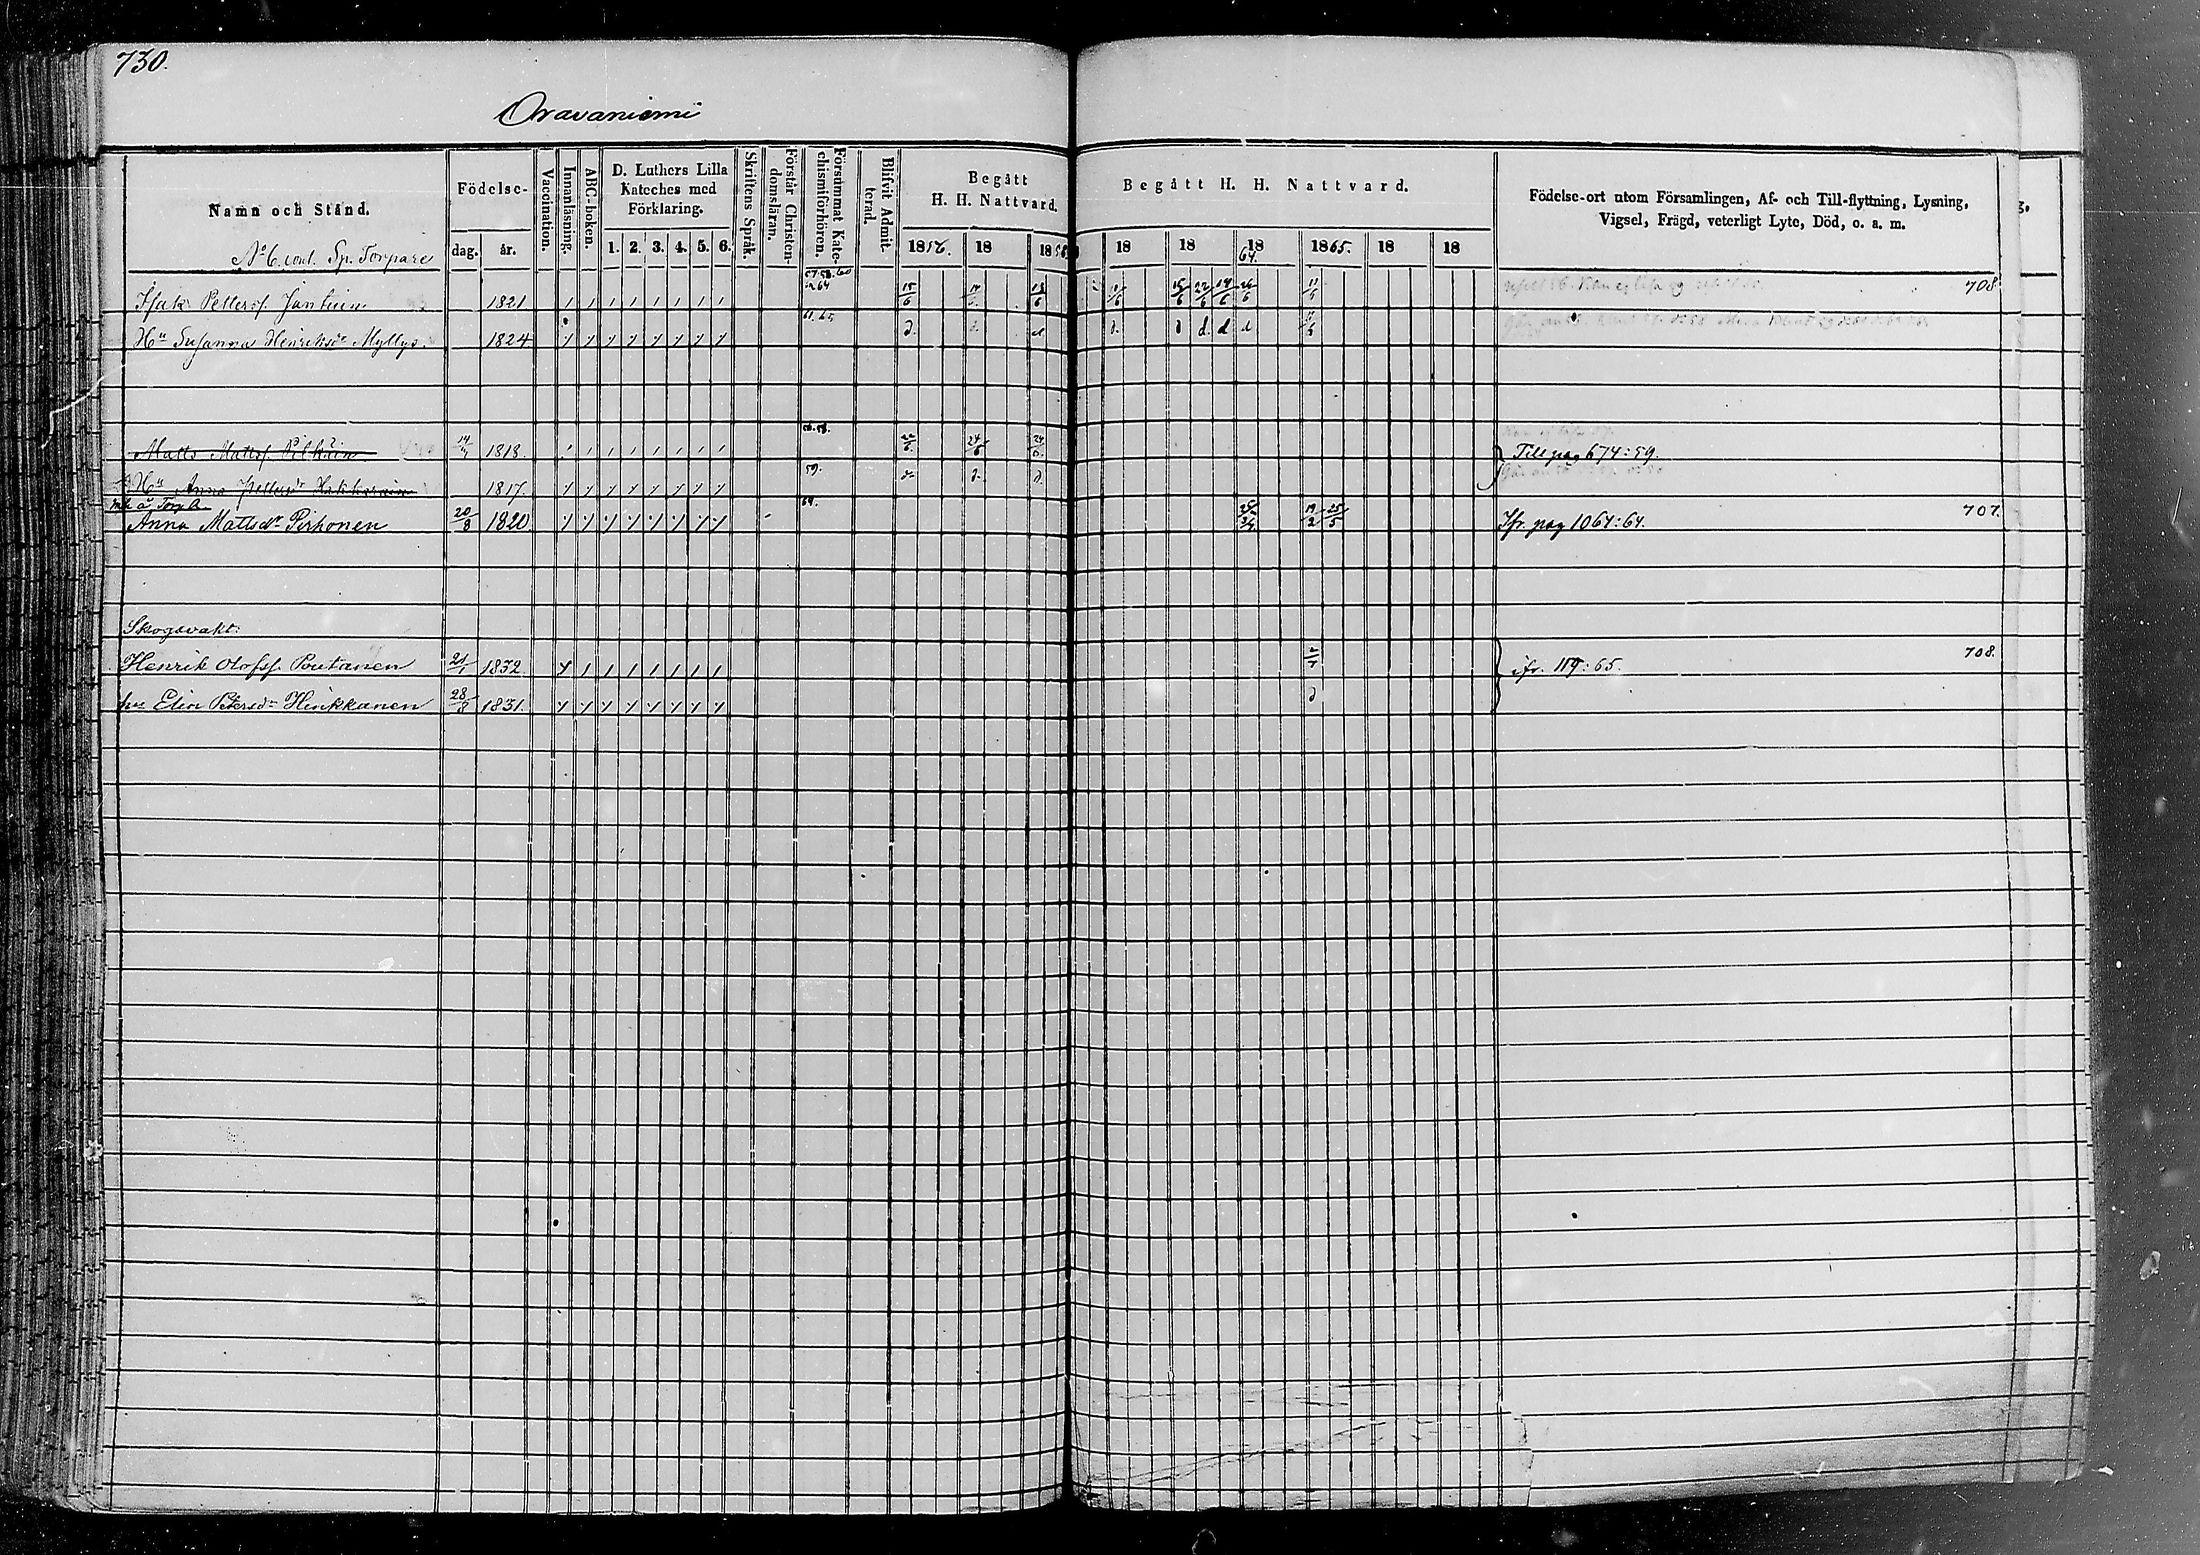 730.
Oravaniemi
Namn och Stånd.
Födelse-
dag. år.
Vaccination.
Innanläsning.
ABC-boken.
D. Luthers Lilla
Kateches med
Förklaring.
1. 2. 3. 4. 5. 6.
Skriftens Språk.
Förstår Christen-
domsläran.
Försummat Kate-
chismiförhören.
Blifvit Admit-
terad.
Begått
H. H. Nattvard.
1856. 18 1858
Begått H. H. Nattvard.
18 18 18 64. 1865. 18 18
Födelse-ort utom Församlingen, Af- och Till-flyttning, Lysning,
Vigsel, Frägd, veterligt Lyte, Död, o. a. m.
No 6. cont. Sp. Torpare
Isak Petterss. 1821 57. 58. 60 64 15/6 18/6 11/5 708
Hu Susanna Henriksdr Myllys. 1824 61. 65 d. d d d d
Matts Mattss. 1818. 56. 58. 24/6 24/6 Till pag 674:59.
Hu Anna Pettersdr 1817. 59. d. d.
Anna Mattsdr Pirhonen 20/8 1820. 64. 19/2 25/5 Jfr. pag 1064:64. 707.
Skogsvakt:
Henrik Olofss. Poutanen 21/1 1832. jfr. 119:65. 708.
hu Elin Petersdr Hinkkanen 28/8 1831. d